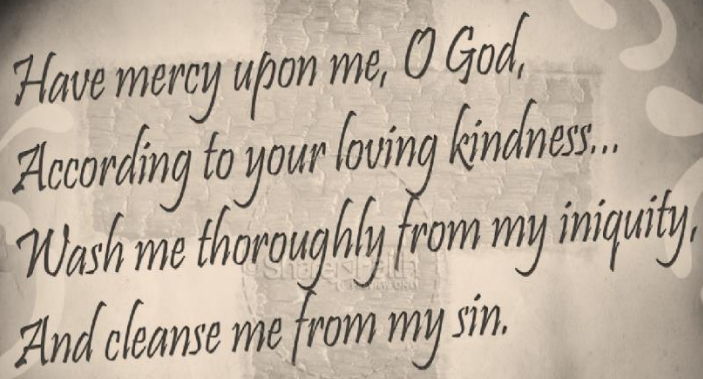 Have mercy upon me, O God,
According to your loving kindness...
Wash me thoroughly from my iniquity,
And cleanse me from my sin.